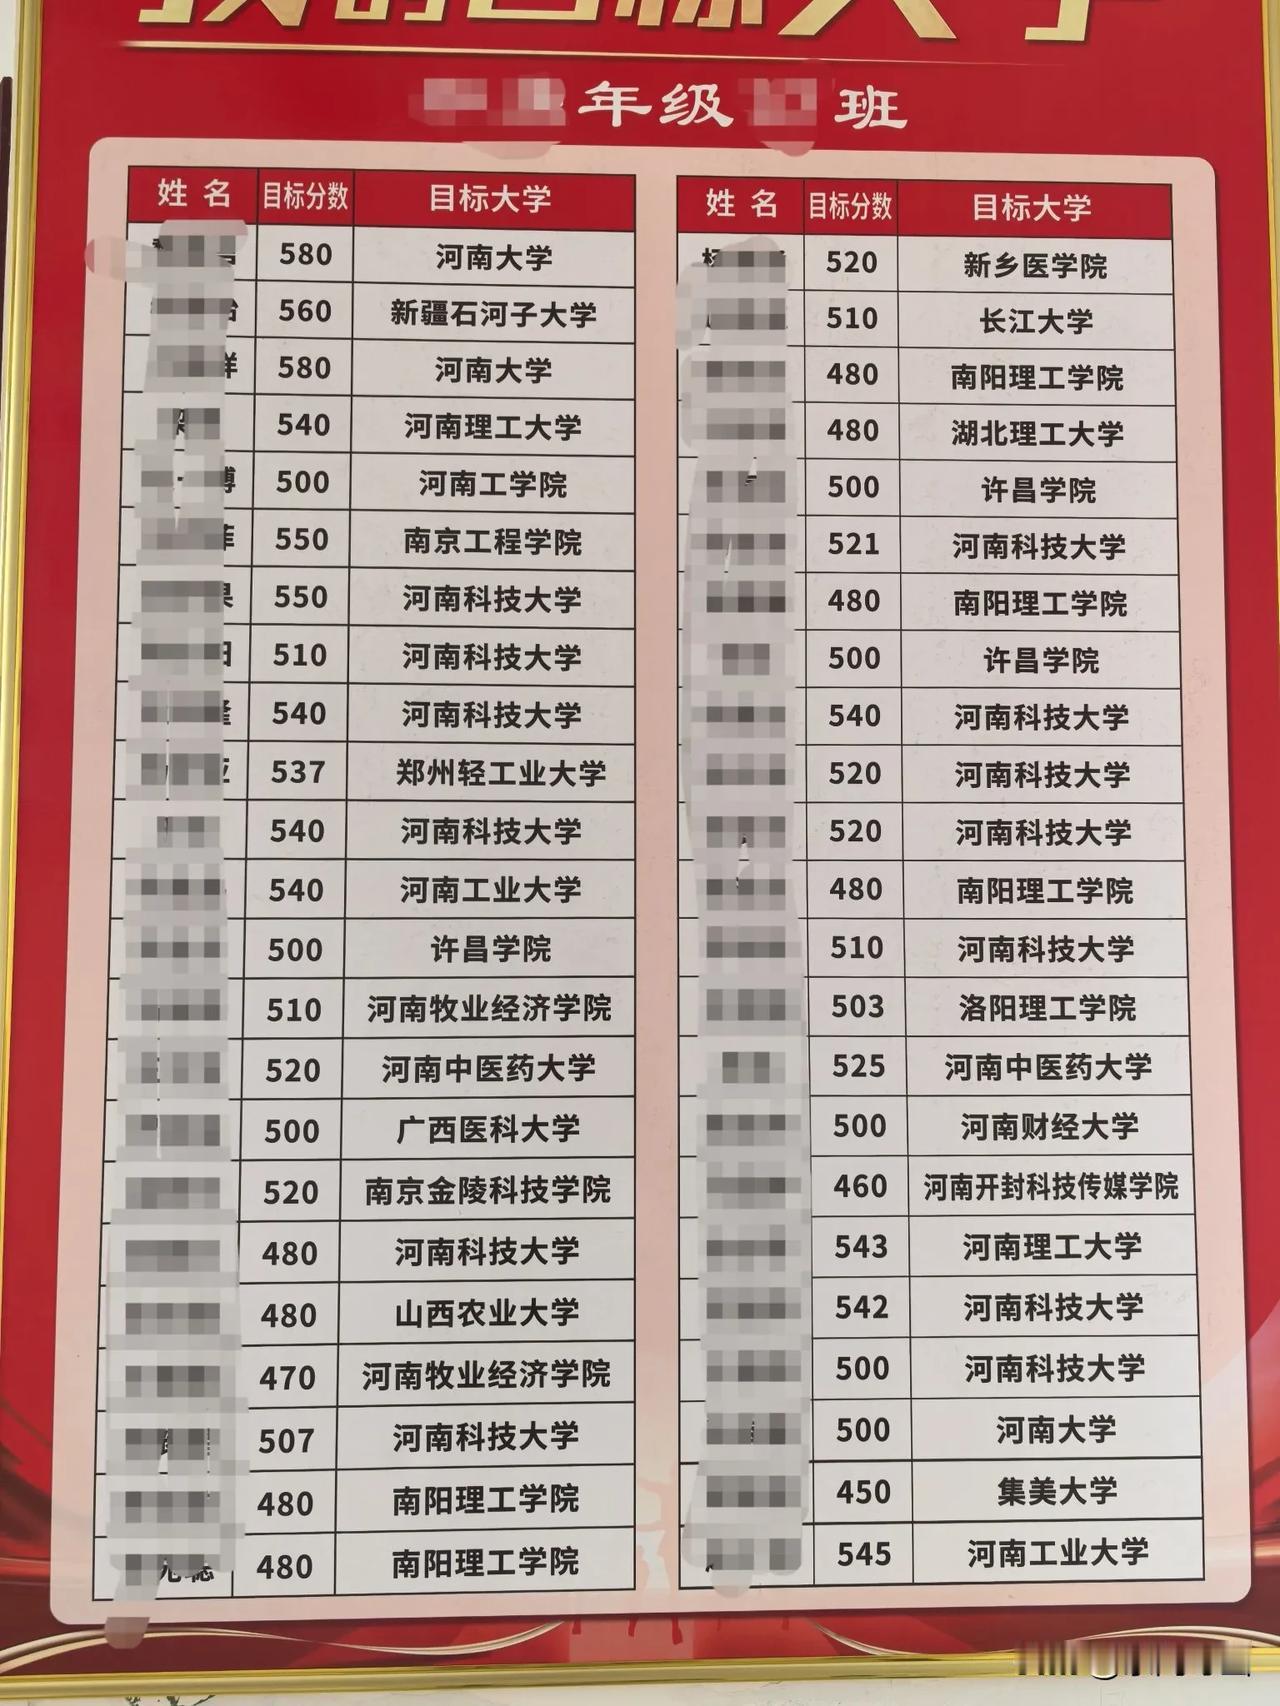 我的目标大学
年级 班
姓名 目标分数 目标大学
580 河南大学
560 新疆石河子大学
580 河南大学
540 河南理工大学
500 河南工学院
550 南京工程学院
550 河南科技大学
510 河南科技大学
540 河南科技大学
537 郑州轻工业大学
540 河南科技大学
540 河南工业大学
500 许昌学院
510 河南牧业经济学院
520 河南中医药大学
500 广西医科大学
520 南京金陵科技学院
480 河南科技大学
480 山西农业大学
470 河南牧业经济学院
507 河南科技大学
480 南阳理工学院
480 南阳理工学院
姓名 目标分数 目标大学
520 新乡医学院
510 长江大学
480 南阳理工学院
480 湖北理工大学
500 许昌学院
521 河南科技大学
480 南阳理工学院
500 许昌学院
540 河南科技大学
520 河南科技大学
520 河南科技大学
480 南阳理工学院
510 河南科技大学
503 洛阳理工学院
525 河南中医药大学
500 河南财经大学
460 河南开封科技传媒学院
543 河南理工大学
542 河南科技大学
500 河南科技大学
500 河南大学
450 集美大学
545 河南工业大学